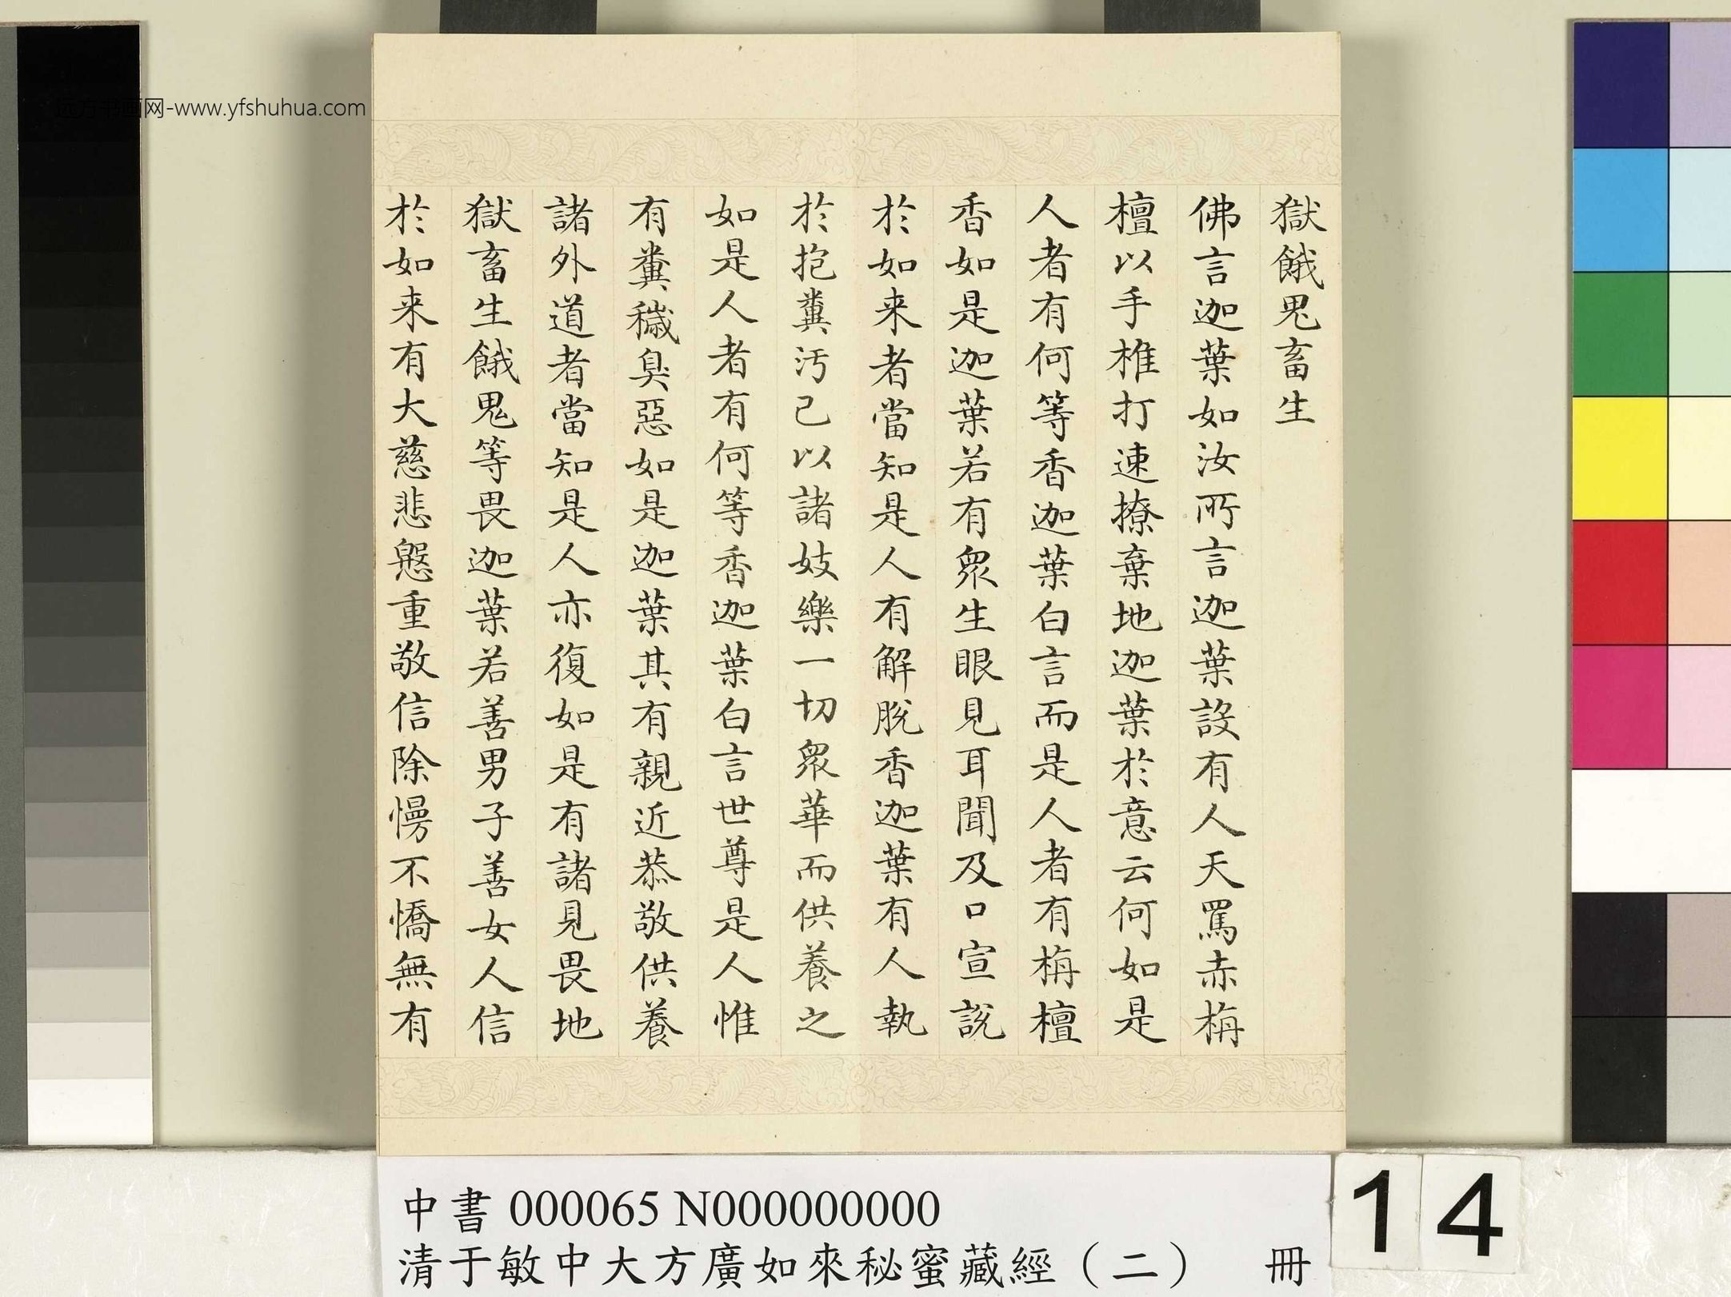 獄餓鬼畜生
佛言迦葉如汝所言迦葉設有人天罵赤栴
檀以手椎打速撩棄地迦葉於意云何如是
人者有何等香迦葉白言而是人者有栴檀
香如是迦葉若有眾生眼見耳聞及口宣說
於如来者當知是人有解脫香迦葉有人執
於抱糞汚己以諸妓樂一切眾華而供養之
如是人者有何等香迦葉白言世尊是人惟
有糞穢臭惡如是迦葉其有親近恭敬供養
諸外道者當知是人亦復如是有諸見畏地
獄畜生餓鬼等畏迦葉若善男子善女人信
於如来有大慈悲慇重敬信除慢不憍無有
中書 000065 N000000000
清于敏中大方廣如來秘蜜藏經（二） 冊
14
远方书画网-www.yfshuhua.com